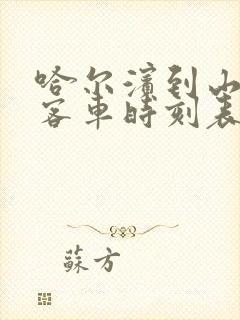 哈尔滨到山
客車時刻表
蘇方